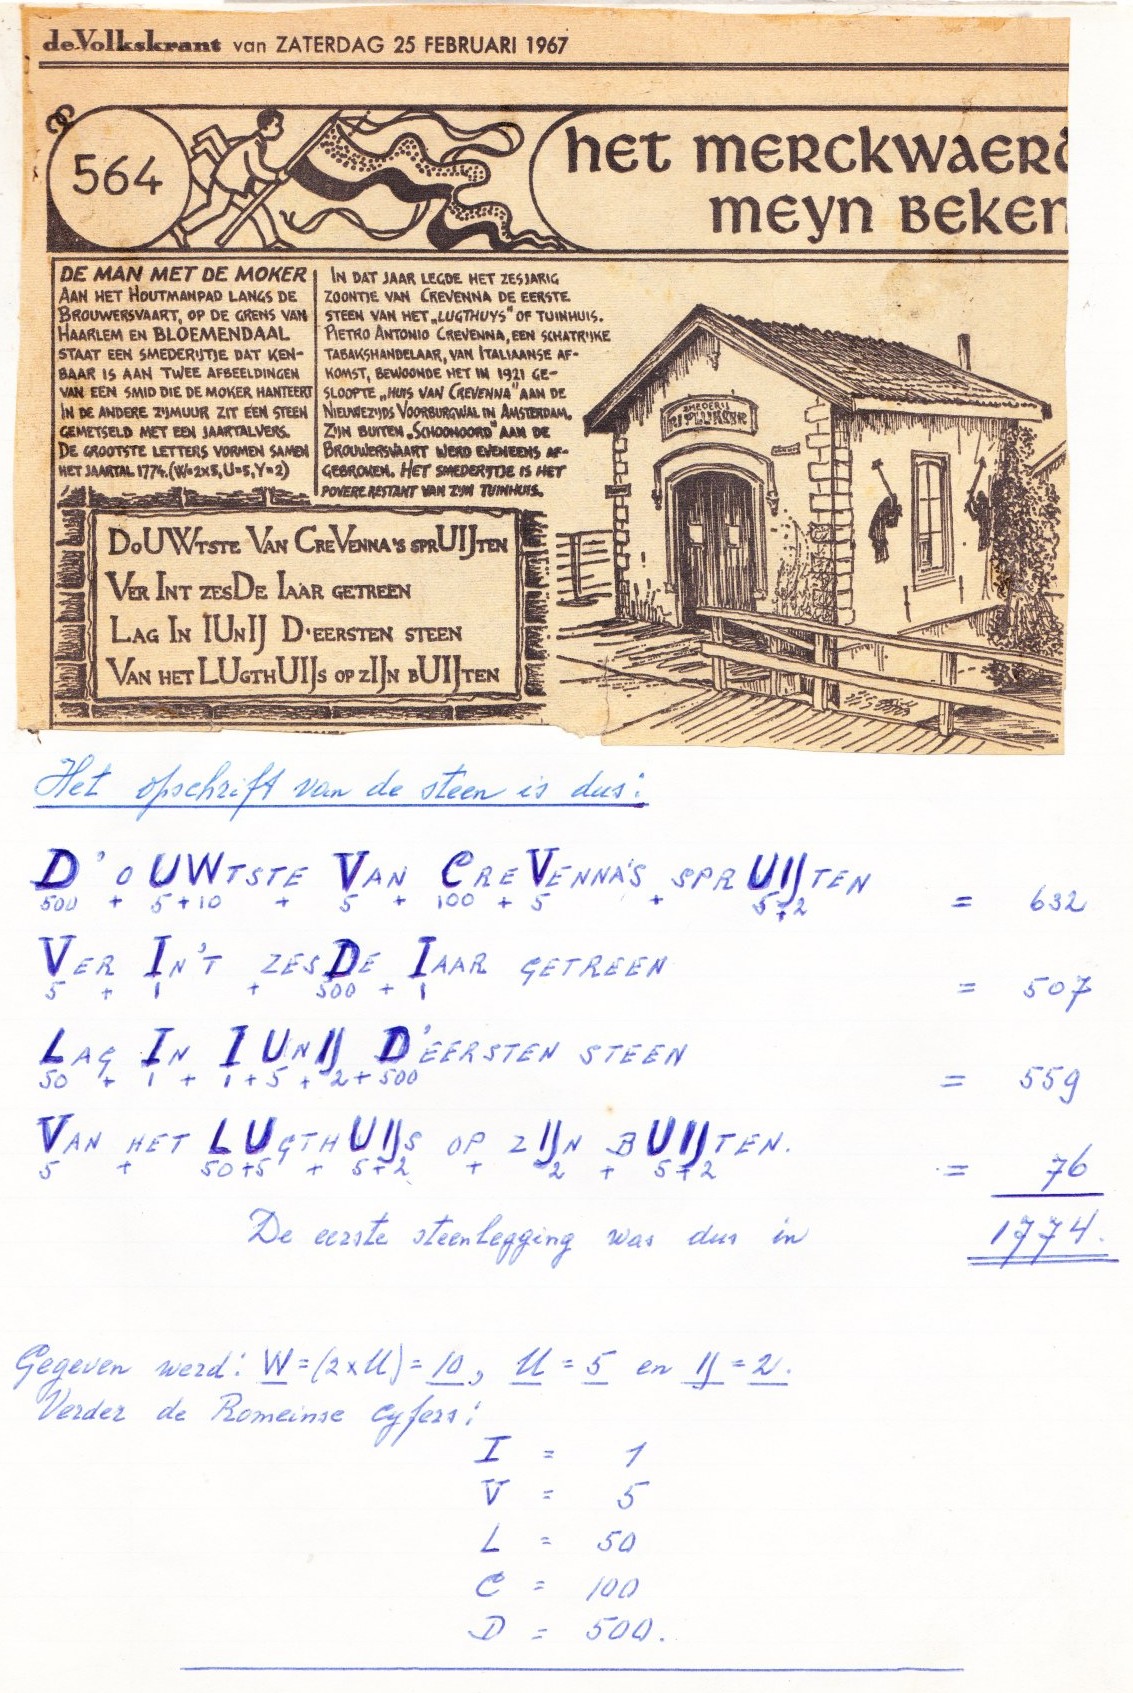 de Volkskrant van ZATERDAG 25 FEBRUARI 1967
564
het merckwaerd
meyn beken
DE MAN MET DE MOKER
AAN HET HOUTMANPAD LANGS DE
BROUWERSVAART, OP DE GRENS VAN
HAARLEM EN BLOEMENDAAL
STAAT EEN SMEDERIJTJE DAT KEN-
BAAR IS AAN TWEE AFBEELDINGEN
VAN EEN SMID DIE DE MOKER HANTEERT
IN DE ANDERE ZIJMUUR ZIT EEN STEEN
GEMETSELD MET EEN JAARTALVERS.
DE GROOTSTE LETTERS VORMEN SAMEN
HET JAARTAL 1774. (W=2x5, U=5, Y=2)
IN DAT JAAR LEGDE HET ZESJARIG
ZOONTJE VAN CREVENNA DE EERSTE
STEEN VAN HET „LUGTHUYS" OF TUINHUIS.
PIETRO ANTONIO CREVENNA, EEN SCHATRIJKE
TABAKSHANDELAAR, VAN ITALIAANSE AF-
KOMST, BEWOONDE HET IN 1921 GE-
SLOOPTE „HUIS VAN CREVENNA" AAN DE
NIEUWEZIJDS VOORBURGWAL IN AMSTERDAM.
ZIJN BUITEN „SCHOONOORD" AAN DE
BROUWERSVAART WERD EVENEENS AF-
GEBROKEN. HET SMEDERIJTJE IS HET
POVERE RESTANT VAN ZIJN TUINHUIS.
SMEDERIJ
DoUWTSTE VAN CREVENNA'S SPRUIJTEN
VER INT ZESDE IAAR GETREEN
LAG IN IUNIJ D'EERSTEN STEEN
VAN HET LUGTHUIJS OP ZIJN BUIJTEN
Het opschrift van de steen is dus:
D'OUWTSTE VAN CREVENNA'S SPRUIJTEN
500 + 5+10 + 5 + 100 + 5 + 5+2 = 632
VER IN'T ZESDE IAAR GETREEN
5 + 1 + 500 + 1 = 507
LAG IN IUNIJ D'EERSTEN STEEN
50 + 1 + 1+5 + 2+500 = 559
VAN HET LUGTHUIJS OP ZIJN BUIJTEN.
5 + 50+5 + 5+2 + 2 + 5+2 = 76
De eerste steenlegging was dus in 1774.
Gegeven werd: W=(2xU)=10, U=5 en IJ=2.
Verder de Romeinse cyfers:
I = 1
V = 5
L = 50
C = 100
D = 500.